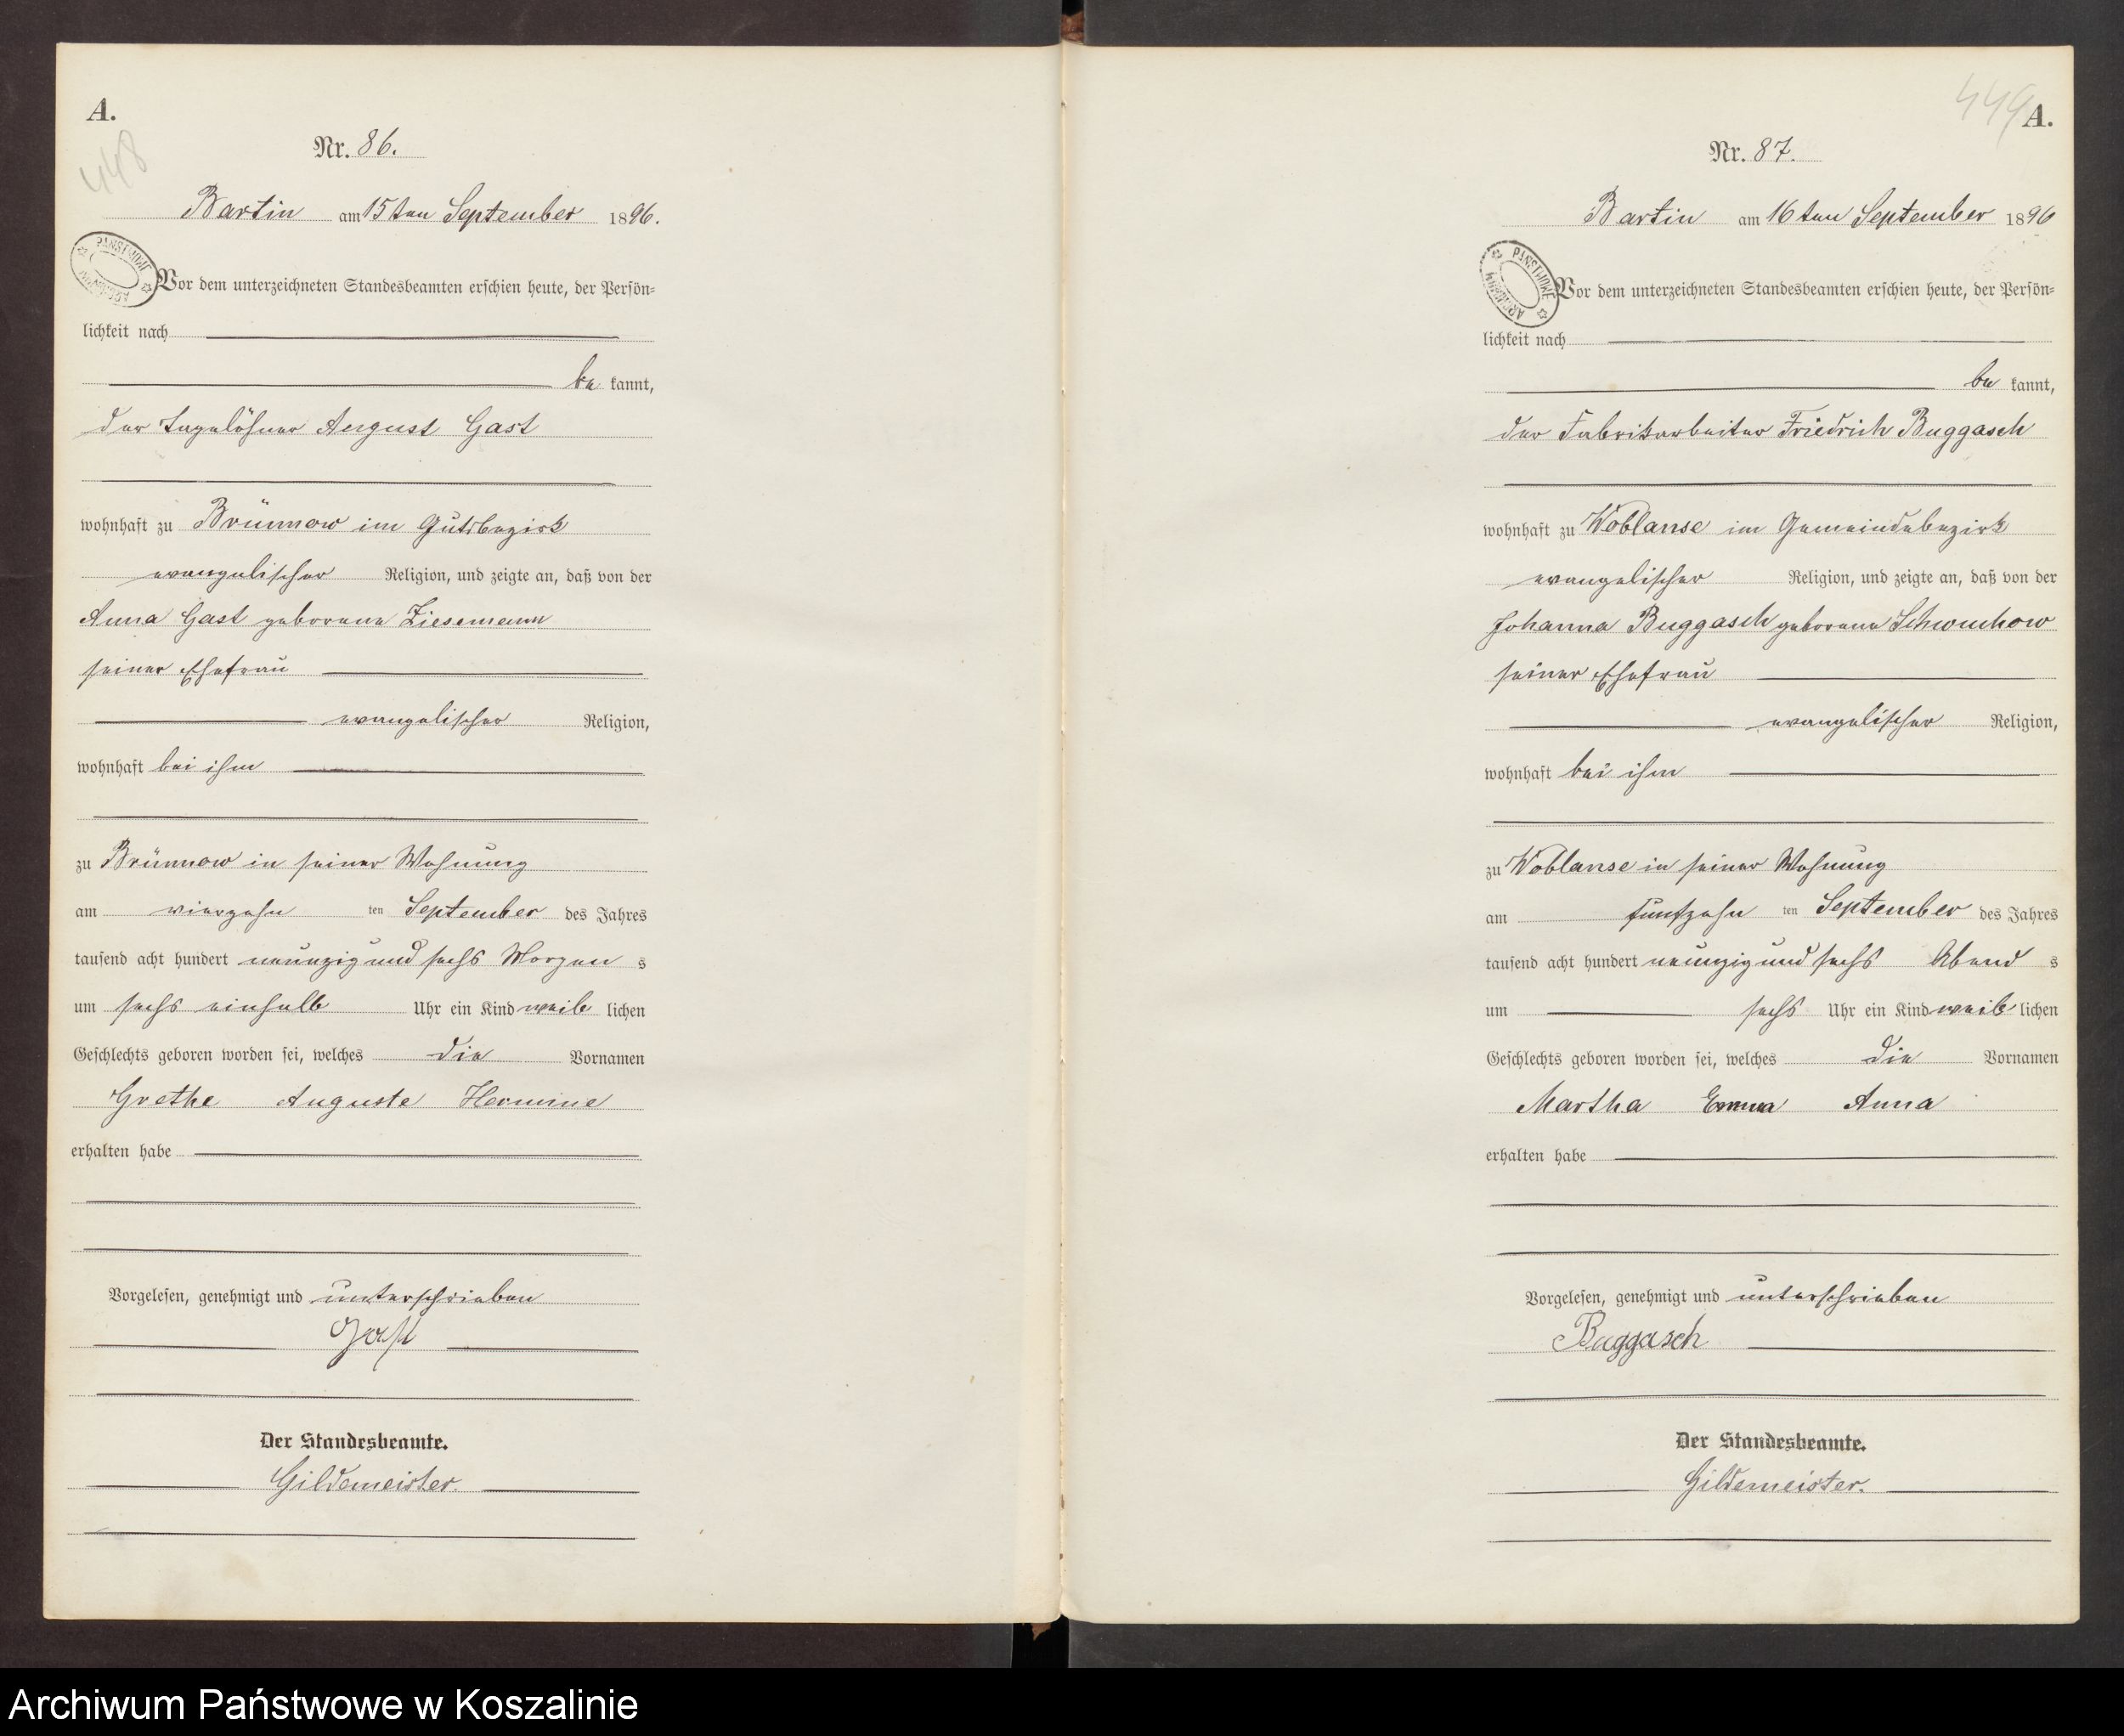 A.
448
Nr. 86.
Bartin am 15ten September 1896.
Vor dem unterzeichneten Standesbeamten erschien heute, der Persön=
lichkeit nach
be kannt,
der Tagelöhner August Gast
wohnhaft zu Brünnow im Gutsbezirk
evangelischer Religion, und zeigte an, daß von der
Anna Gast geborene Ziesemann
seiner Ehefrau
evangelischer Religion,
wohnhaft bei ihm
zu Brünnow in seiner Wohnung
am vierzehn ten September des Jahres
tausend acht hundert neunzig und sechs Morgen s
um sechs einhalb Uhr ein Kind weib lichen
Geschlechts geboren worden sei, welches die Vornamen
Grethe Auguste Hermine
erhalten habe
Vorgelesen, genehmigt und unterschrieben
Gast
Der Standesbeamte.
Gildemeister.
449
A.
Nr. 87.
Bartin am 16ten September 1896
PAŃSTWOWE ARCHIWUM
Vor dem unterzeichneten Standesbeamten erschien heute, der Persön=
lichkeit nach
be kannt,
der Fabrikarbeiter Friedrich Buggasch
wohnhaft zu Woblanse im Gemeindebezirk
evangelischer Religion, und zeigte an, daß von der
Johanna Buggasch geborene Schwuchow
seiner Ehefrau
evangelischer Religion,
wohnhaft bei ihm
zu Woblanse in seiner Wohnung
am fünfzehn ten September des Jahres
tausend acht hundert neunzig und sechs Abend s
um sechs Uhr ein Kind weib lichen
Geschlechts geboren worden sei, welches die Vornamen
Martha Emma Anna
erhalten habe
Vorgelesen, genehmigt und unterschrieben
Buggasch
Der Standesbeamte.
Gildemeister.
Archiwum Państwowe w Koszalinie